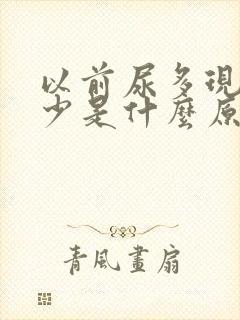 以前尿多現
少是什麼原
青風畫扇